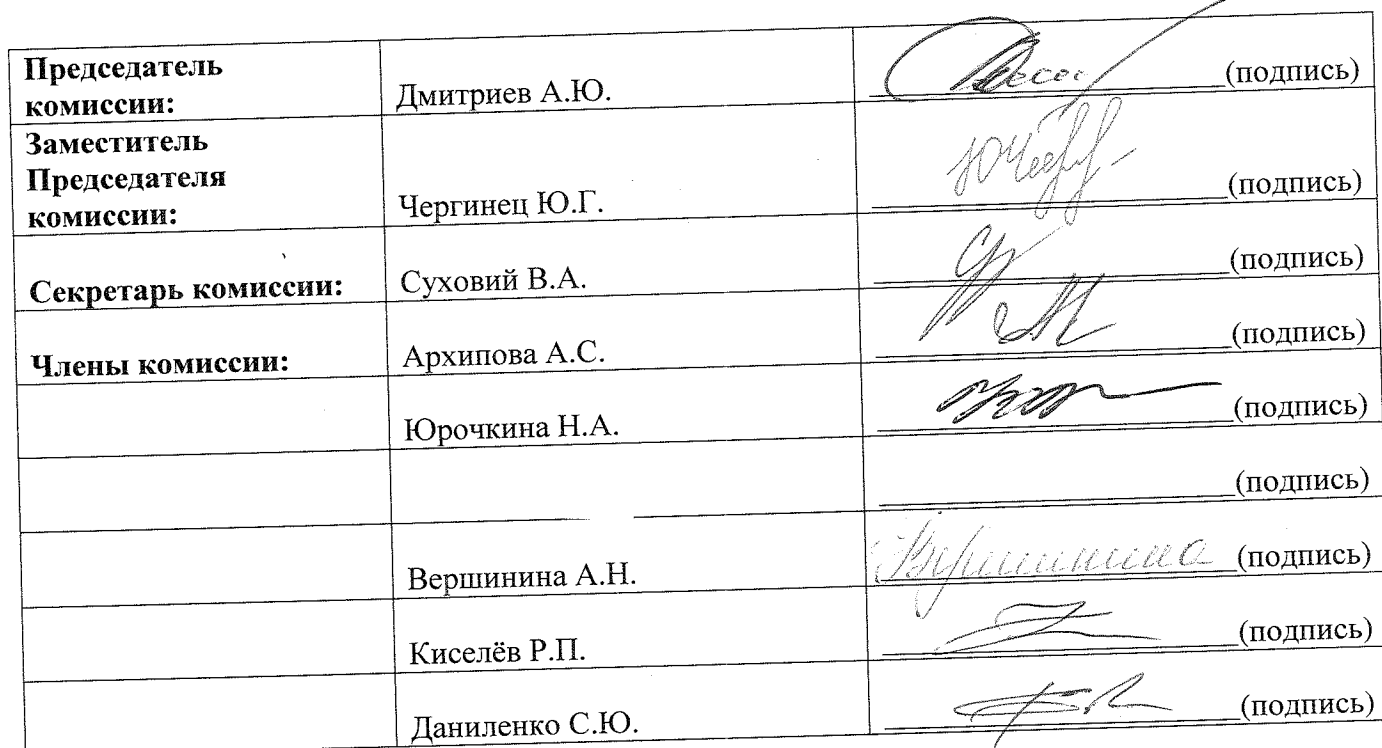 Председатель
комиссии:
Дмитриев А.Ю.
(подпись)
Заместитель
Председателя
комиссии:
Чергинец Ю.Г.
(подпись)
Секретарь комиссии:
Суховий В.А.
(подпись)
Члены комиссии:
Архипова А.С.
(подпись)
Юрочкина Н.А.
(подпись)
(подпись)
Вершинина А.Н.
Вершинина (подпись)
Киселёв Р.П.
(подпись)
Даниленко С.Ю.
(подпись)